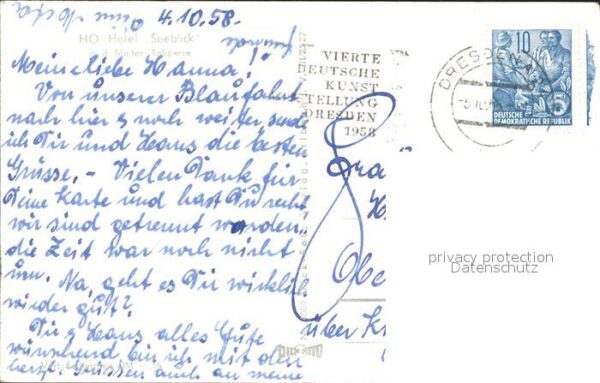 4.10.58.
HO-Hotel "Seeblick"
a. d. Saaler Talsperre
Meine liebe Hanna!
Von unserer Blaufahrt
nach hier u. noch weiter sende
ich Dir und Hans die besten
Grüsse. - Vielen Dank für
Deine Karte und hast Du recht
wir sind getrennt worden,
die Zeit war noch nicht
um. Na, geht es Dir wirklich
wieder gut?
Dir u. Hans alles Gute
wünschend bin ich mit den
herzl. Grüssen auch an meine
VIERTE
DEUTSCHE
KUNST
STELLUNG
DRESDEN
1958
DRESDEN
10
5
DEUTSCHE
DEMOKRATISCHE REPUBLIK
Fra
H
Obe
über K
privacy protection
Datenschutz